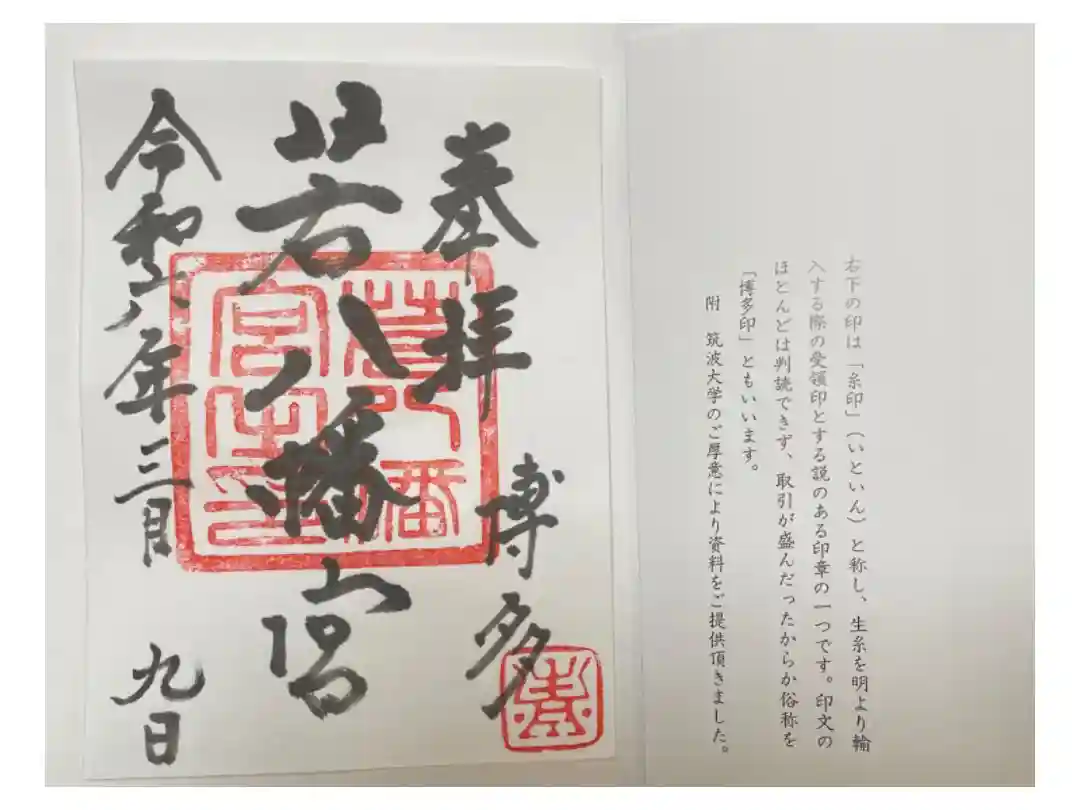 奉拝 博多
若八幡宮
令和六年三月 九日
右下の印は「糸印」(いといん)と称し、生糸を明より輸
入する際の受領印とする説のある印章の一つです。印文の
ほとんどは判読できず、取引が盛んだったからか俗称を
「博多印」ともいいます。
附 筑波大学のご厚意により資料をご提供頂きました。